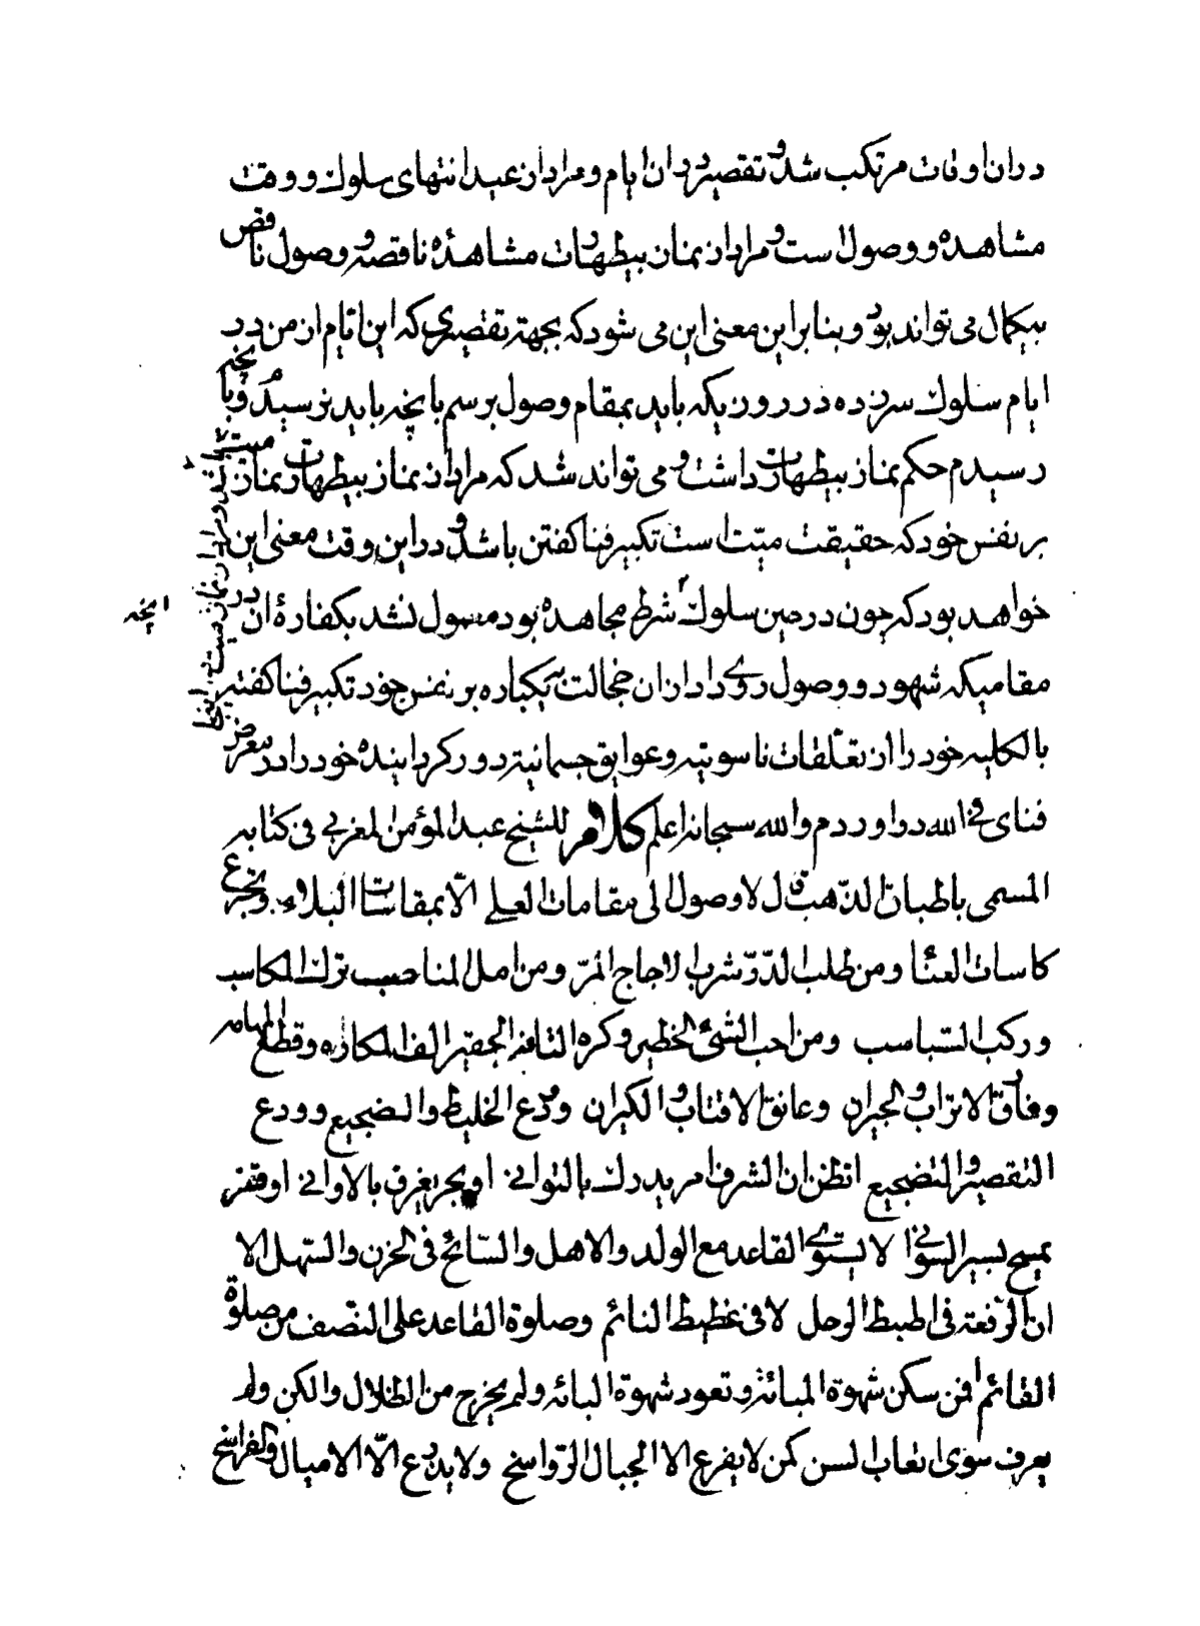 در ان اوقات مرتکب شد و تقصیر در ان ایام و مراد از عید انتهای سلوک و وقت
مشاهده و وصول است و مراد از نماز بیطهارت مشاهدهٔ ناقصه و وصول ناقص
بیکمال می تواند بود و بنا براین معنی این می شود که بجهته تقصیری که این ایام از من در
ایام سلوک سرزده در روزیکه باید بمقام وصول برسم بانچه باید نرسیدم و بانچه
رسیدم حکم نماز بیطهارت داشت و می تواند شد که مراد از نماز بیطهارت نماز میت
بر نفس خود که حقیقت میّت است تکبیر فنا کفتن باشد و در این وقت معنی این
خواهد بود که چون در حین سلوک شرط مجاهده بود معمول نشد بکفارهٔ ان در
مقامیکه شهود و وصول روی داد از ان خجالت بیکباره بر نفس خود تکبیر فنا کفتیم
بالکلیه خود را از تعلّقات ناسوتیه و عوایق جسمانیته دور کردانیده خود را در معرض
فنای فی الله در اوردم والله سبحانه اعلم کلام للشیخ عبد المؤمن المغربی فی کتابه
المسمی باطباق الذّهب قال لا وصول الی مقامات العلی الّا بمقاسات البلاء و تجرع
کاسات العنا و من طلب الدّر شرب الاجاج المرّ و من امل المناصب ترک المکاسب
و رکب السباسب و من احب الشیٔ الخطیر و کره التافه الحقیر الف المکاره و قطع المهامه
و فارق الاتراب و الجیران و عانق الاقتاب و الکیران و ودع الخلیط و الضجیع و ودع
التقصیر و التضجیع اتظن ان الشرف امر یدرک بالتوانی او بحر یغرف بالاوانی او قفر
یمسح بسیر السوانی لا یستوی القاعد مع الولد و الاهل و السائح فی الحزن و السهل الا
ان الرّفعة فی اطیط الرحل لا فی غطیط النائم و صلوة القاعد علی النّصف من صلوة
القائم افمن سکن شهوة المبائة و تعود شهوة البائه و لم یخرج من الظلال و الکن و لم
یعرف سوی اتعاب السن کمن لا یفرع الا الجبال الرواسخ و لا یذرع الّا الامیال و الفراسخ
انچه